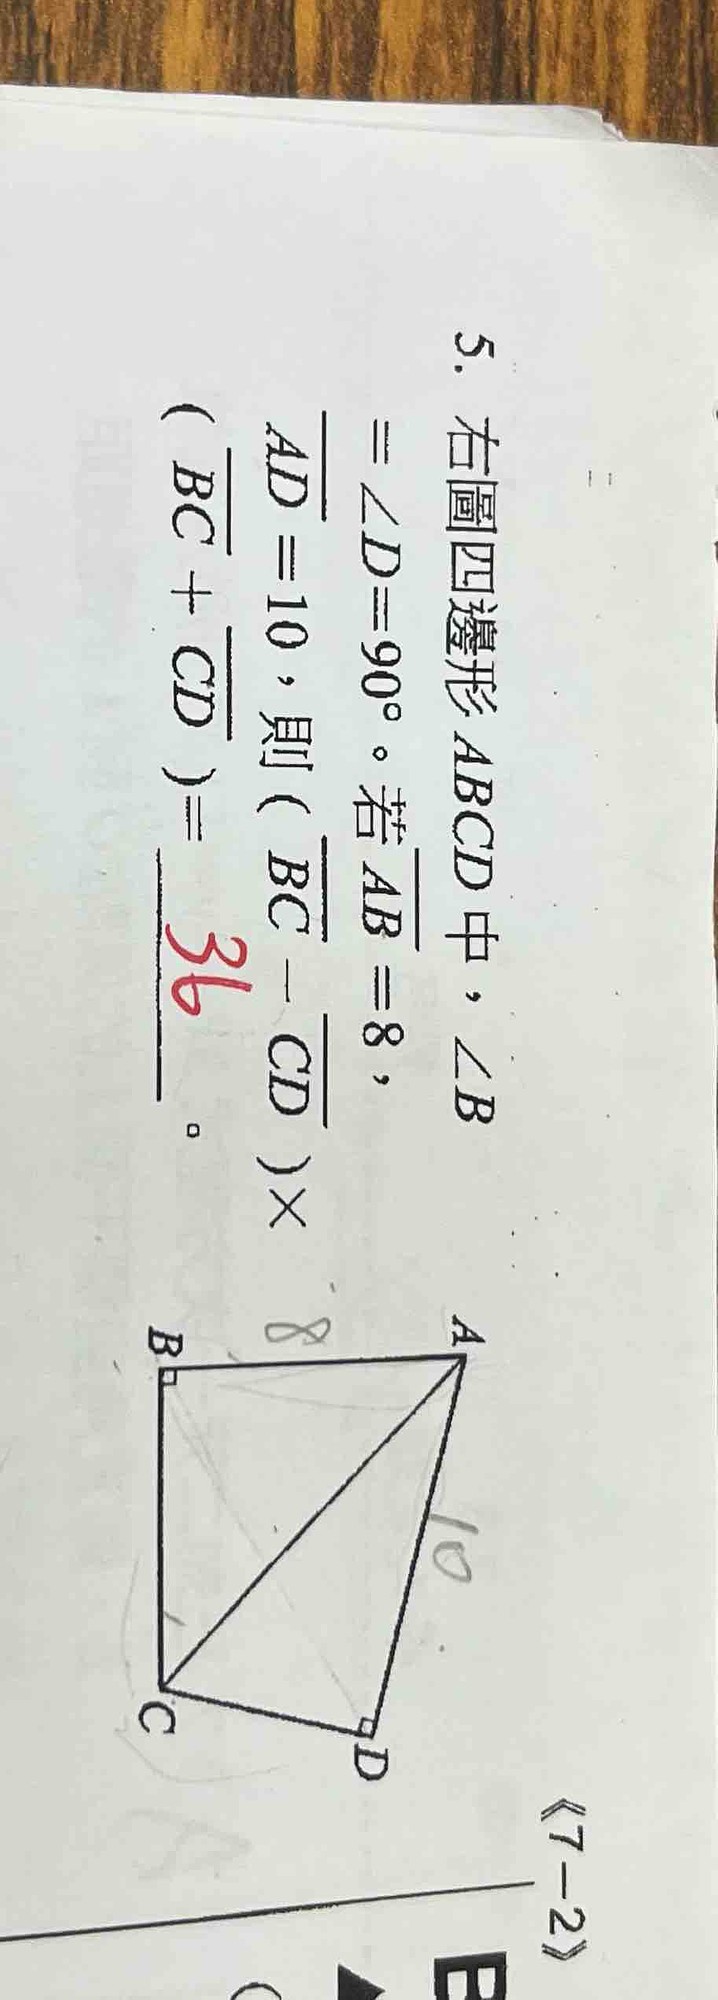 5. 右圖四邊形 ABCD 中，∠B
=∠D=90°。若 AB =8，
AD =10，則( BC - CD )×
( BC + CD )= 36 。
A
8
B
10
C
D
《7-2》